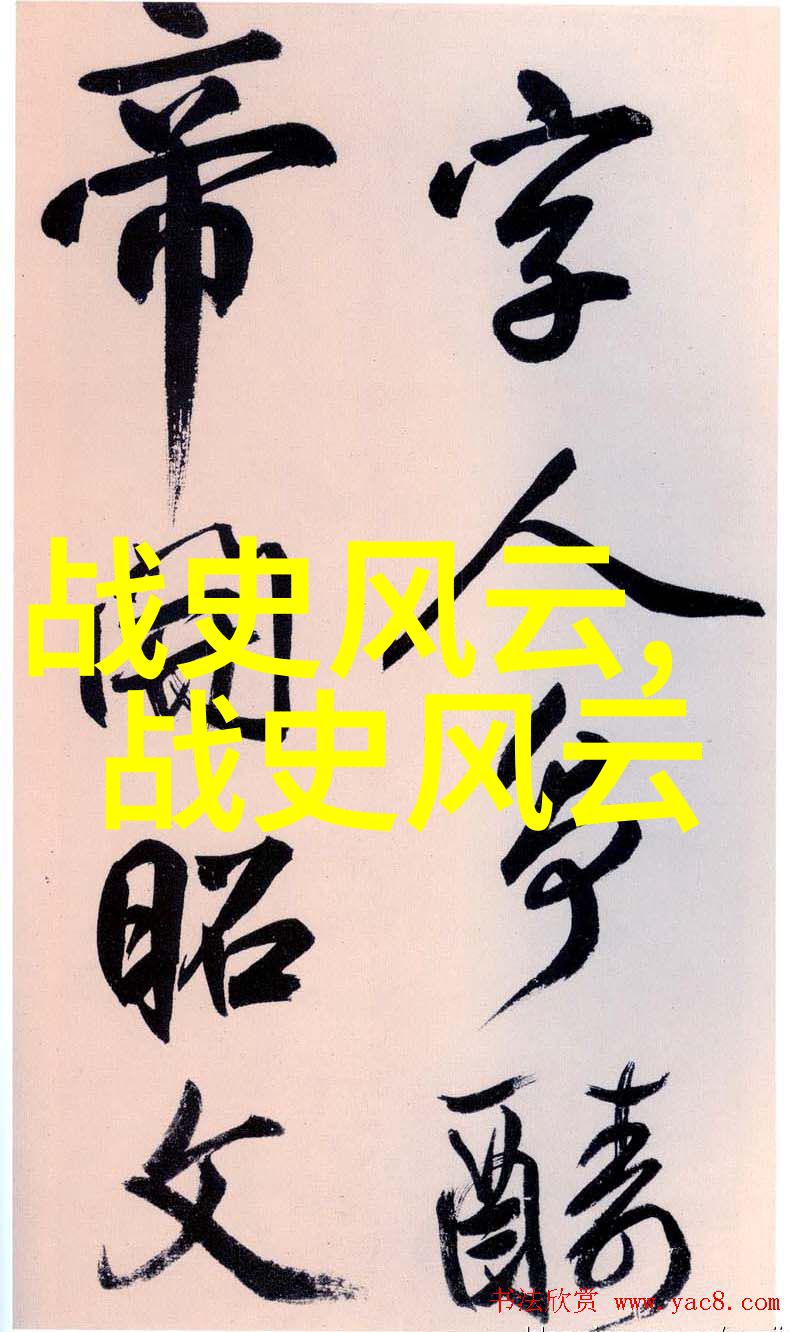 字人爭醻
帝昭文
战史风云,
战史风云
书法欣赏 www.yac8.com